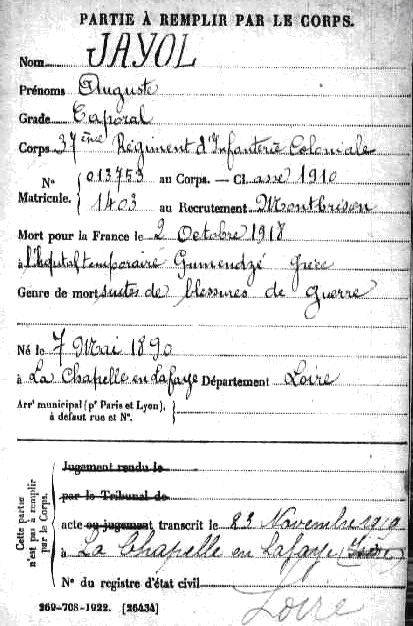 PARTIE À REMPLIR PAR LE CORPS.
Nom JAYOL
Prénoms Auguste
Grade Caporal
Corps 37ème Régiment d'Infanterie Coloniale
N° Matricule. { 013753 au Corps. — Classe 1910
1403 au Recrutement Montbrison
Mort pour la France le 2 Octobre 1918
à l'hôpital temporaire Gumendzé Grèce
Genre de mort suites de blessures de guerre
Né le 7 Mai 1890
à La Chapelle en Lafaye Département Loire
Arrt municipal (pr Paris et Lyon), à défaut rue et N°. {
Cette partie n'est pas à remplir par le Corps.
Jugement rendu le
par le Tribunal de
acte ou jugement transcrit le 23 Novembre 1919
à La Chapelle en Lafaye
N° du registre d'état civil
Loire
269-708-1922. [26434]